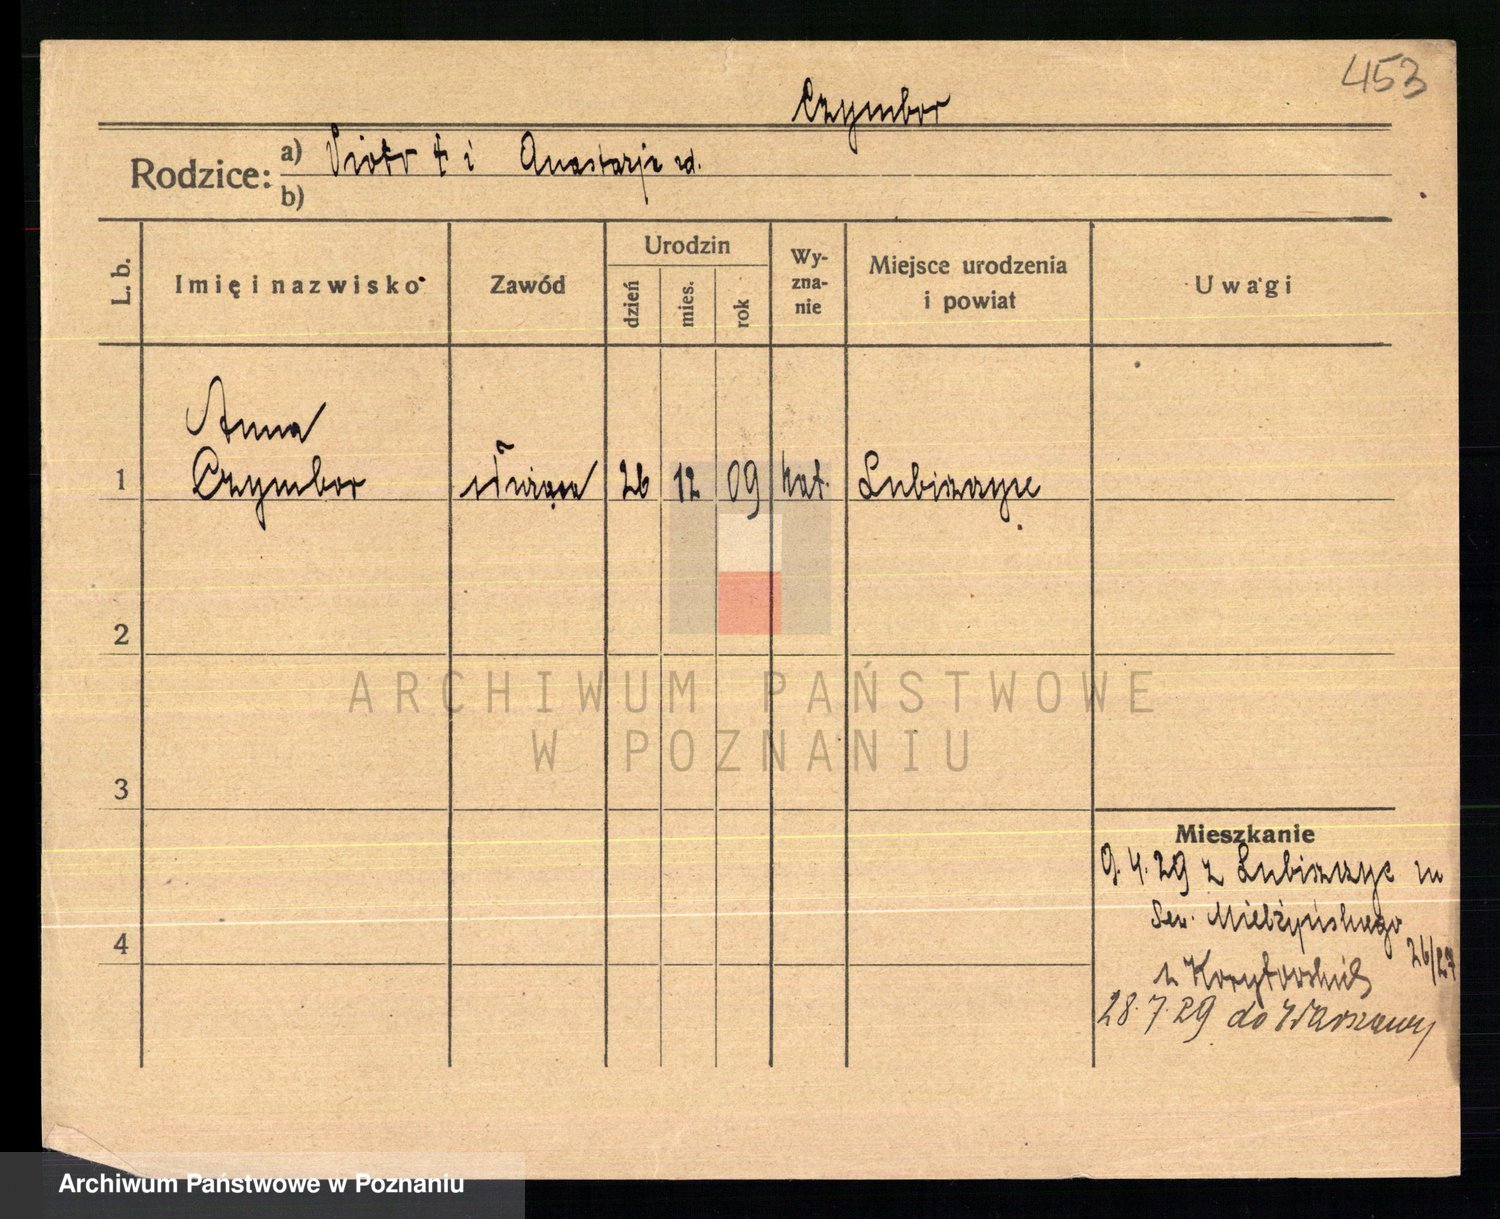 453
Czymbor
Rodzice: a) Piotr † i Anastazja zd.
b)
L. b.
Imię i nazwisko
Zawód
Urodzin
dzień
mies.
rok
Wy-
zna-
nie
Miejsce urodzenia
i powiat
Uwagi
Anna
1 Czymbor służąca 26 12 09 kat.
2
ARCHIWUM PAŃSTWOWE
W POZNANIU
3
Mieszkanie
9.4.29 z
Sew. Mielżyńskiego
4
26/27
28.7.29 do Warszawy
Archiwum Państwowe w Poznaniu